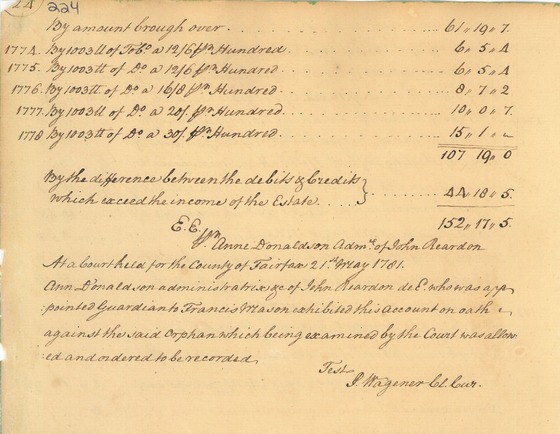 24 224
By amount brough over . . . . . . . . . . . . . . 61 " 19 " 7.
1774. By 1003 lb of Tobo. a 12/6 pr Hundred . . . . . . . . . 6 " 5 " 4
1775. By 1003 lb of Do a 12/6 pr Hundred . . . . . . . . . 6 " 5 " 4
1776. By 1003 lb of Do a 16/8 pr Hundred . . . . . . . . . 8 " 7 " 2
1777. By 1003 lb of Do a 20/. pr Hundred . . . . . . . . . 10 " 0 " 7.
1778 By 1003 lb of Do a 30/. pr Hundred . . . . . . . . . 15 " 1 " -
107 19 " 0
By the difference between the debits & Credits
which exceed the income of the Estate . . . . } . . . . . . . 44 " 18 " 5.
152 " 17 " 5.
E. E.
pr Anne Donaldson Admx. of John Reardon
At a court held for the County of Fairfax 21st. May 1781.
Ann Donaldson administratrix &c of John Reardon decd. who was ap
:pointed Guardian to Francis Mason exhibited this Account on oath
against the said Orphan which being examined by the Court was allow
:ed and ordered to be recorded,
Test
P. Wagener Cl. Cur.